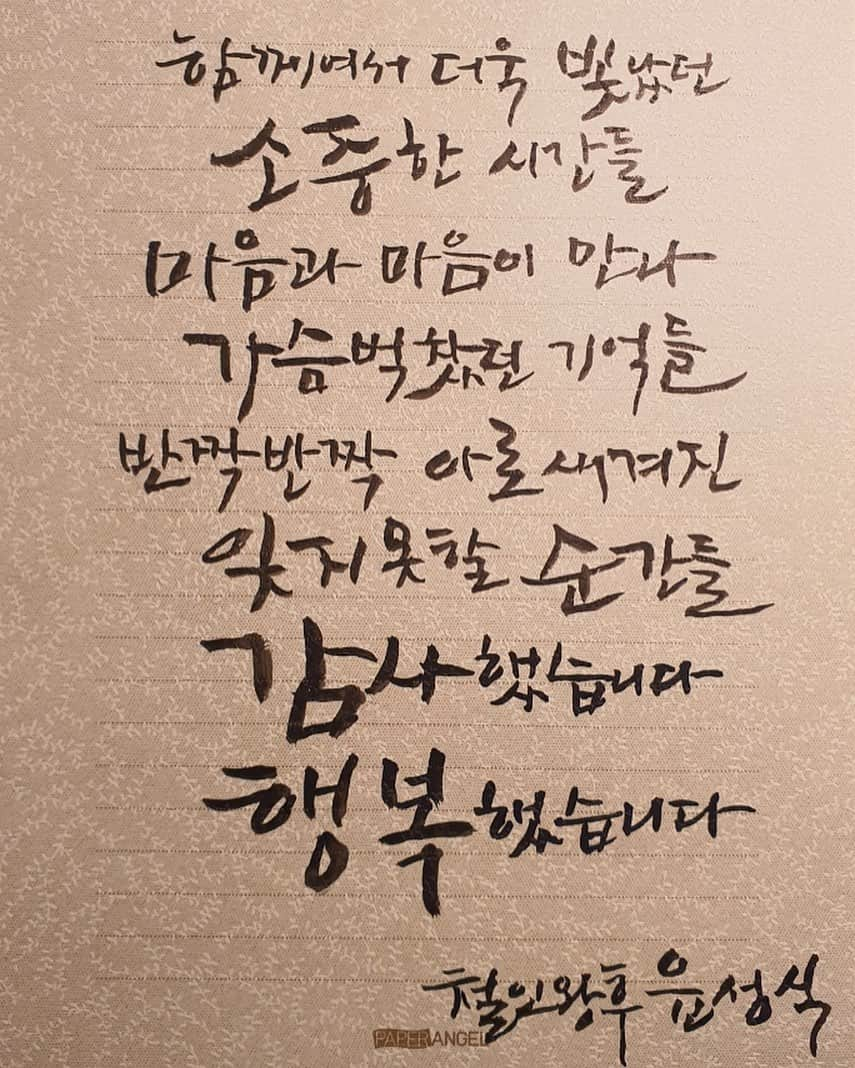 함께여서 더욱 빛났던
소중한 시간들
마음과 마음이 만나
가슴벅찼던 기억들
반짝반짝 아로새겨진
잊지못할 순간들
감사했습니다
행복했습니다
철인왕후 윤성식
PAPER ANGEL